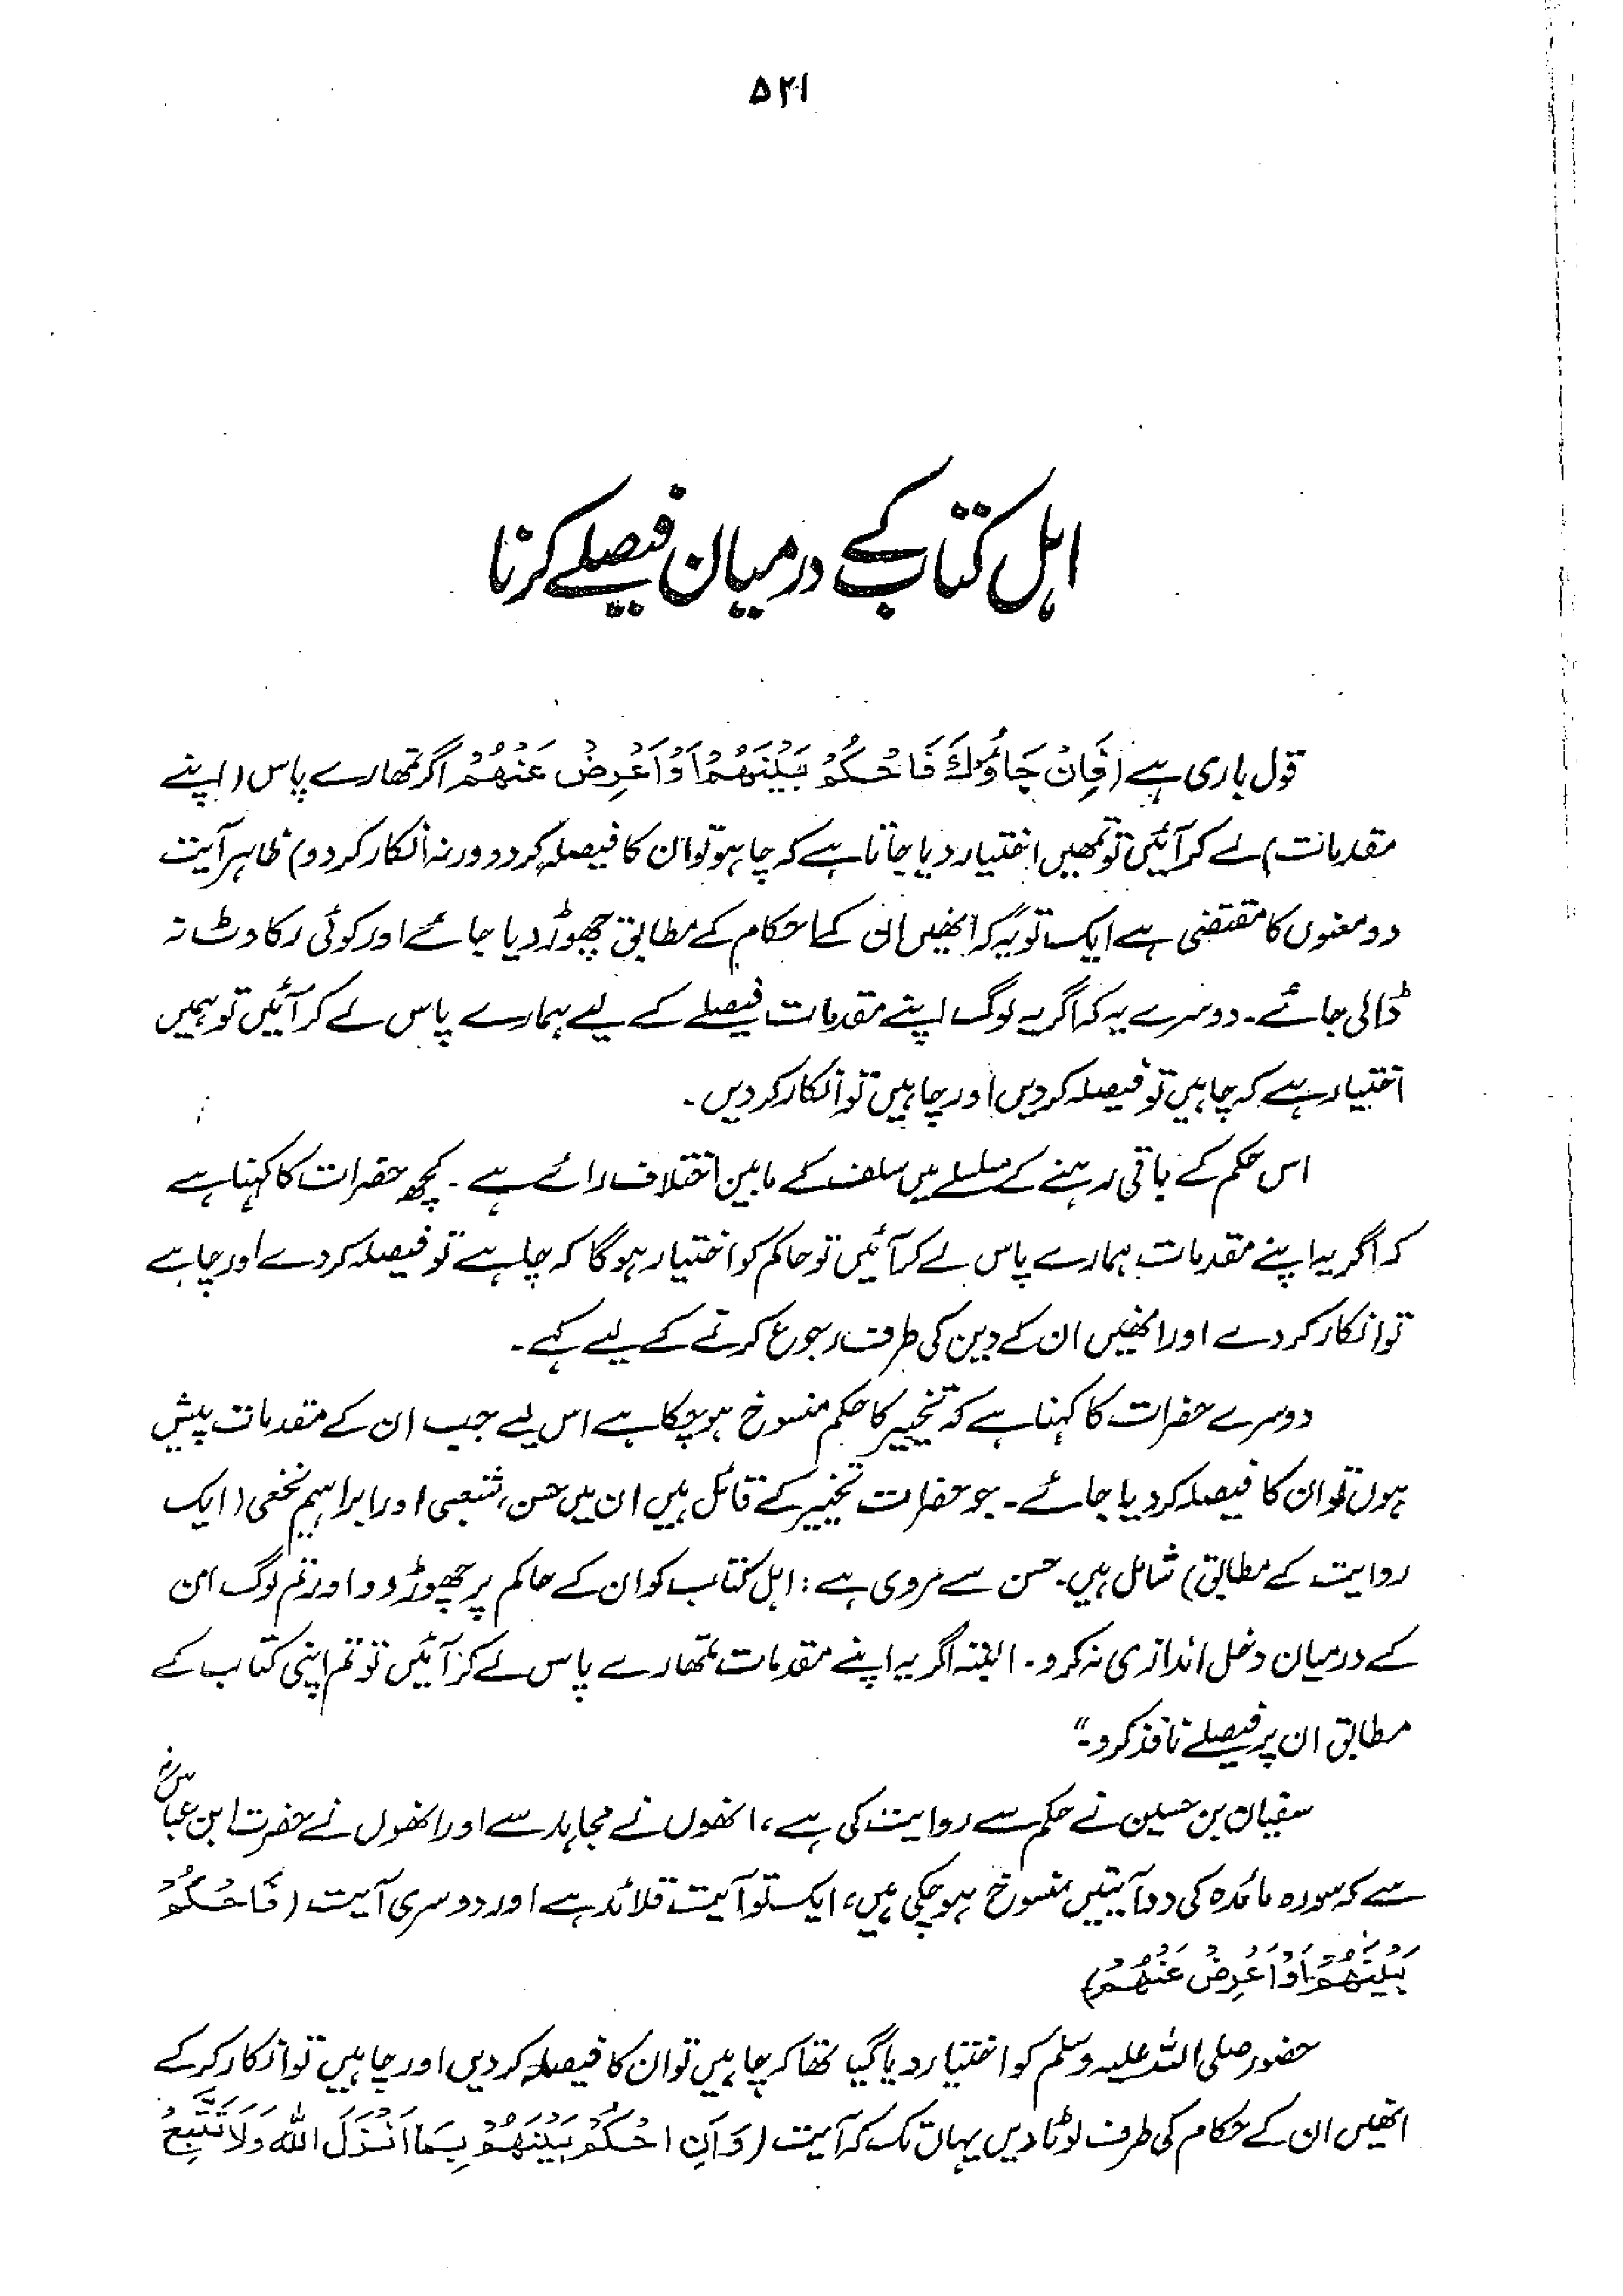 ۵۲۱
اہل کتاب کے درمیان فیصلے کرنا
قول باری ہے (فَاِنْ جَاءُوْكَ فَاحْكُمْ بَيْنَهُمْ اَوْ اَعْرِضْ عَنْهُمْ اگر تمھارے پاس (اپنے
مقدمات) لے کر آئیں تو تمھیں اختیار دیا جاتا ہے کہ چاہو تو ان کا فیصلہ کر دو ورنہ انکار کر دو) ظاہر آیت
دو معنوں کا مقتضی ہے ایک تو یہ کہ انھیں ان کے احکام کے مطابق چھوڑ دیا جائے اور کوئی رکاوٹ نہ
ڈالی جائے۔ دوسرے یہ کہ اگر یہ لوگ اپنے مقدمات فیصلے کے لیے ہمارے پاس لے کر آئیں تو ہمیں
اختیار ہے کہ چاہیں تو فیصلہ کر دیں اور چاہیں تو انکار کر دیں۔
اس حکم کے باقی رہنے کے سلسلے میں سلف کے مابین اختلاف رائے ہے۔ کچھ حضرات کا کہنا ہے
کہ اگر یہ اپنے مقدمات ہمارے پاس لے کر آئیں تو حاکم کو اختیار ہوگا کہ چاہے تو فیصلہ کر دے اور چاہے
تو انکار کر دے اور انھیں ان کے دین کی طرف رجوع کرنے کے لیے کہے۔
دوسرے حضرات کا کہنا ہے کہ تخییر کا حکم منسوخ ہو چکا ہے اس لیے جب ان کے مقدمات پیش
ہوں تو ان کا فیصلہ کر دیا جائے۔ جو حضرات تخییر کے قائل ہیں ان میں حسن، شعبی اور ابراہیم نخعی (ایک
روایت کے مطابق) شامل ہیں۔ حسن سے مروی ہے: اہل کتاب کو ان کے حاکم پر چھوڑ دو اور تم لوگ ان
کے درمیان دخل اندازی نہ کرو۔ البتہ اگر یہ اپنے مقدمات تمھارے پاس لے کر آئیں تو تم اپنی کتاب کے
مطابق ان پر فیصلے نافذ کرو۔“
سفیان بن حسین نے حکم سے روایت کی ہے، انھوں نے مجاہد سے اور انھوں نے حضرت ابن عباسؓ
سے کہ سورہ مائدہ کی دو آیتیں منسوخ ہو چکی ہیں، ایک تو آیت قلائد ہے اور دوسری آیت (فَاحْكُمْ
بَيْنَهُمْ اَوْ اَعْرِضْ عَنْهُمْ)
حضور صلی اللہ علیہ وسلم کو اختیار دیا گیا تھا کہ چاہیں تو ان کا فیصلہ کر دیں اور چاہیں تو انکار کر کے
انھیں ان کے حکام کی طرف لوٹا دیں یہاں تک کہ آیت (وَاَنِ احْكُمْ بَيْنَهُمْ بِمَا اَنْزَلَ اللهُ وَلَا تَتَّبِعْ